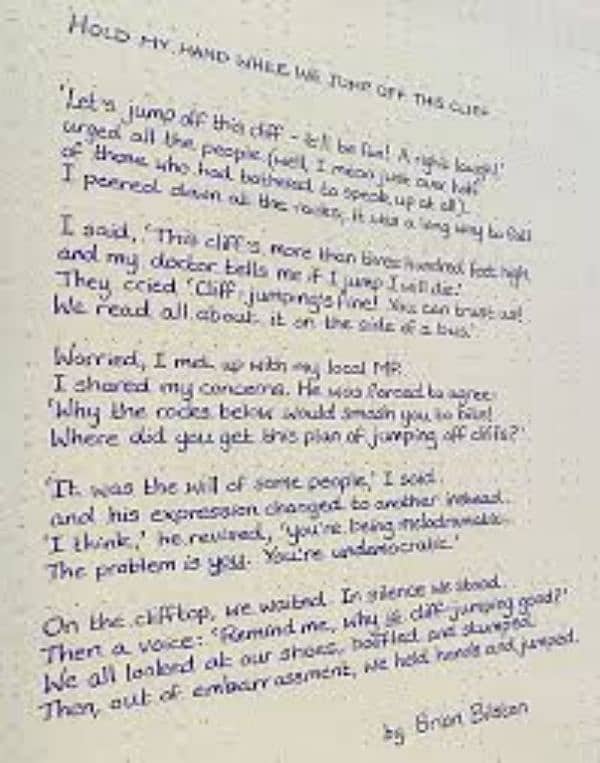 HOLD MY HAND WHILE WE JUMP OFF THIS CLIFF
'Let's jump off this cliff – it'll be fun! A right laugh!'
urged all the people (well, I mean just over half
of those who had bothered to speak up at all).
I peered down at the rocks; it was a long way to fall
I said, 'This cliff's more than three hundred foot high
and my doctor tells me if I jump I will die.'
They cried 'Cliff-jumping's fine! You can trust us!
We read all about it on the side of a bus.'
Worried, I met up with my local MP.
I shared my concerns. He was forced to agree:
'Why the rocks below would smash you to
Where did you get this plan of jumping off cliffs?'
'It was the will of some people,' I said.
and his expression changed to another instead.
'I think,' he revised, 'you're being melodramatic.
The problem is you. You're undemocratic.'
On the clifftop, we waited. In silence we stood.
Then a voice: 'Remind me, why is cliff-jumping good?'
We all looked at our shoes, baffled and stumped.
Then, out of embarrassment, we held hands and jumped.
by Brian Bilston